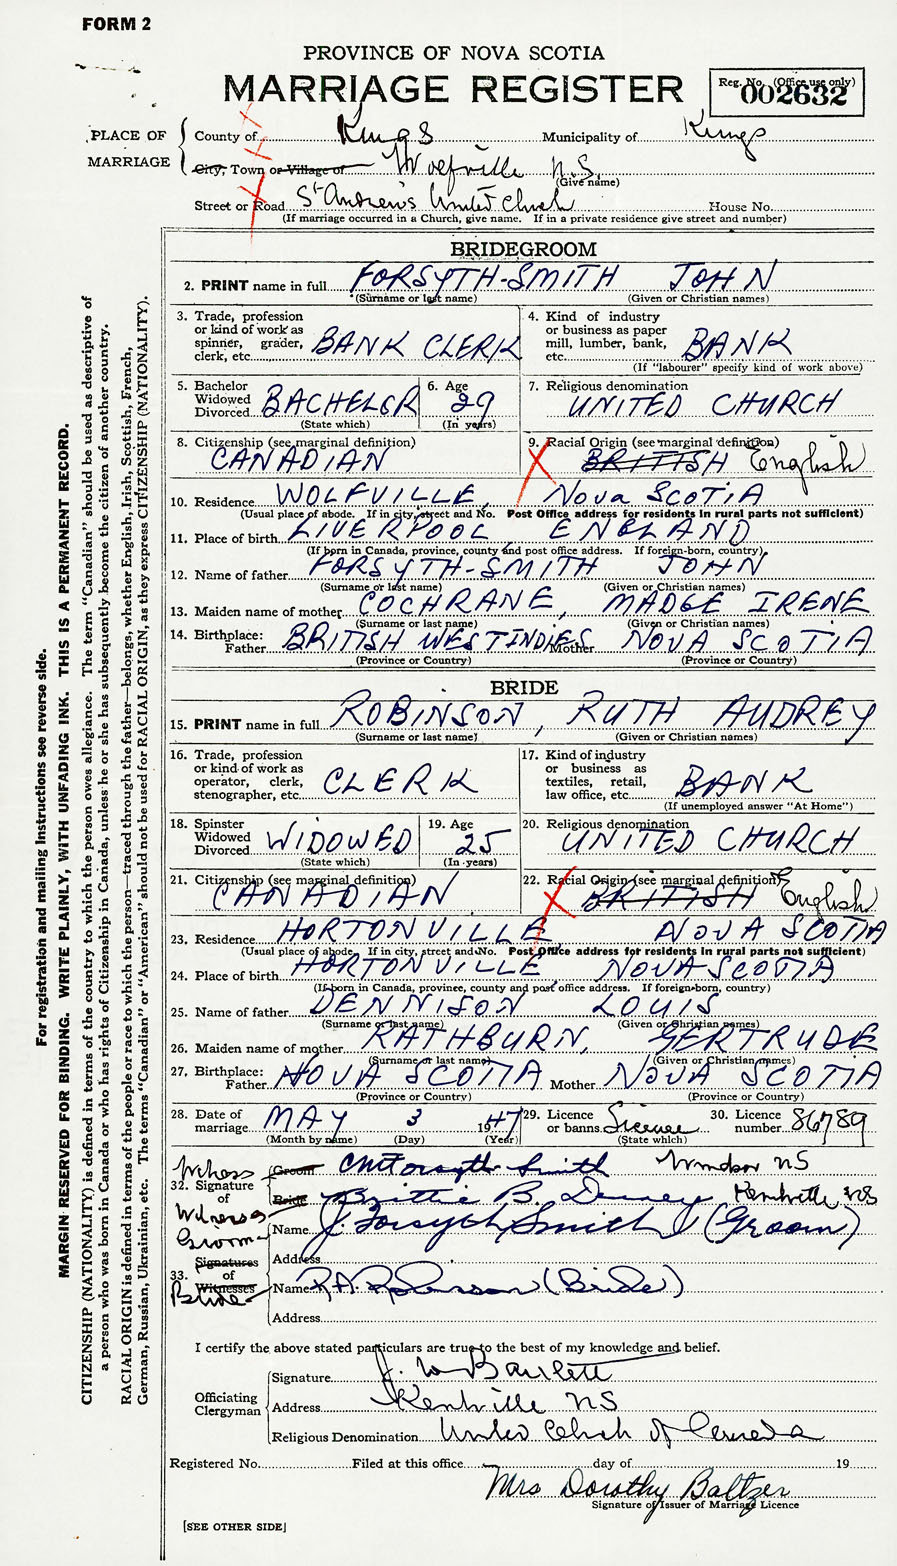 FORM 2
PROVINCE OF NOVA SCOTIA
MARRIAGE REGISTER
Reg. No. (Office use only)
002632
PLACE OF MARRIAGE
County of Kings Municipality of Kings
City, Town or Village of Wolfville N.S.
(Give name)
Street or Road St Andrew's United Church House No.
(If marriage occurred in a Church, give name. If in a private residence give street and number)
BRIDEGROOM
2. PRINT name in full FORSYTH-SMITH JOHN
(Surname or last name) (Given or Christian names)
3. Trade, profession or kind of work as spinner, grader, clerk, etc. BANK CLERK
4. Kind of industry or business as paper mill, lumber, bank, etc. BANK
(If "labourer" specify kind of work above)
5. Bachelor Widowed Divorced BACHELOR
(State which)
6. Age 29
(In years)
7. Religious denomination UNITED CHURCH
8. Citizenship (see marginal definition) CANADIAN
9. Racial Origin (see marginal definition) BRITISH English
10. Residence WOLFVILLE, NOVA SCOTIA
(Usual place of abode. If in city, street and No. Post Office address for residents in rural parts not sufficient)
11. Place of birth LIVERPOOL ENGLAND
(If born in Canada, province, county and post office address. If foreign-born, country)
12. Name of father FORSYTH-SMITH JOHN
(Surname or last name) (Given or Christian names)
13. Maiden name of mother COCHRANE, MADGE IRENE
(Surname or last name) (Given or Christian names)
14. Birthplace: Father BRITISH WEST INDIES Mother NOVA SCOTIA
(Province or Country) (Province or Country)
BRIDE
15. PRINT name in full ROBINSON, RUTH AUDREY
(Surname or last name) (Given or Christian names)
16. Trade, profession or kind of work as operator, clerk, stenographer, etc. CLERK
17. Kind of industry or business as textiles, retail, law office, etc. BANK
(If unemployed answer "At Home")
18. Spinster Widowed Divorced WIDOWED
(State which)
19. Age 25
(In years)
20. Religious denomination UNITED CHURCH
21. Citizenship (see marginal definition) CANADIAN
22. Racial Origin (see marginal definition) BRITISH English
23. Residence HORTONVILLE NOVA SCOTIA
(Usual place of abode. If in city, street and No. Post Office address for residents in rural parts not sufficient)
24. Place of birth HORTONVILLE NOVA SCOTIA
(If born in Canada, province, county and post office address. If foreign-born, country)
25. Name of father DENNISON LOUIS
(Surname or last name) (Given or Christian names)
26. Maiden name of mother RATHBURN, GERTRUDE
(Surname or last name) (Given or Christian names)
27. Birthplace: Father NOVA SCOTIA Mother NOVA SCOTIA
(Province or Country) (Province or Country)
28. Date of marriage MAY 3 1947
(Month by name) (Day) (Year)
29. Licence or banns License
(State which)
30. Licence number 86789
Witness Groom Forsyth-Smith Windsor NS
32. Signature of Bride B. Kentville NS
Witness
Groom Name J. Forsyth Smith (Groom)
Address
33. Signatures of Witnesses
Bride Name R.A. Robinson (Bride)
Address
I certify the above stated particulars are true to the best of my knowledge and belief.
Officiating Clergyman
Signature J. W. Bartlett
Address Kentville NS
Religious Denomination United Church of Canada
Registered No. Filed at this office day of 19
Mrs Dorothy Baltzer
Signature of Issuer of Marriage Licence
[SEE OTHER SIDE]
For registration and mailing instructions see reverse side.
MARGIN RESERVED FOR BINDING. WRITE PLAINLY, WITH UNFADING INK. THIS IS A PERMANENT RECORD.
CITIZENSHIP (NATIONALITY) is defined in terms of the country to which the person owes allegiance. The term "Canadian" should be used as descriptive of
a person who was born in Canada or who has rights of Citizenship in Canada, unless he or she has subsequently become the citizen of another country.
RACIAL ORIGIN is defined in terms of the people or race to which the person—traced through the father—belongs, whether English, Irish, Scottish, French,
German, Russian, Ukrainian, etc. The terms "Canadian" or "American" should not be used for RACIAL ORIGIN, as they express CITIZENSHIP (NATIONALITY).